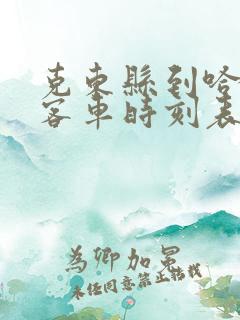 克東縣到哈
客車時刻表
為卿加冕
未经同意禁止转载